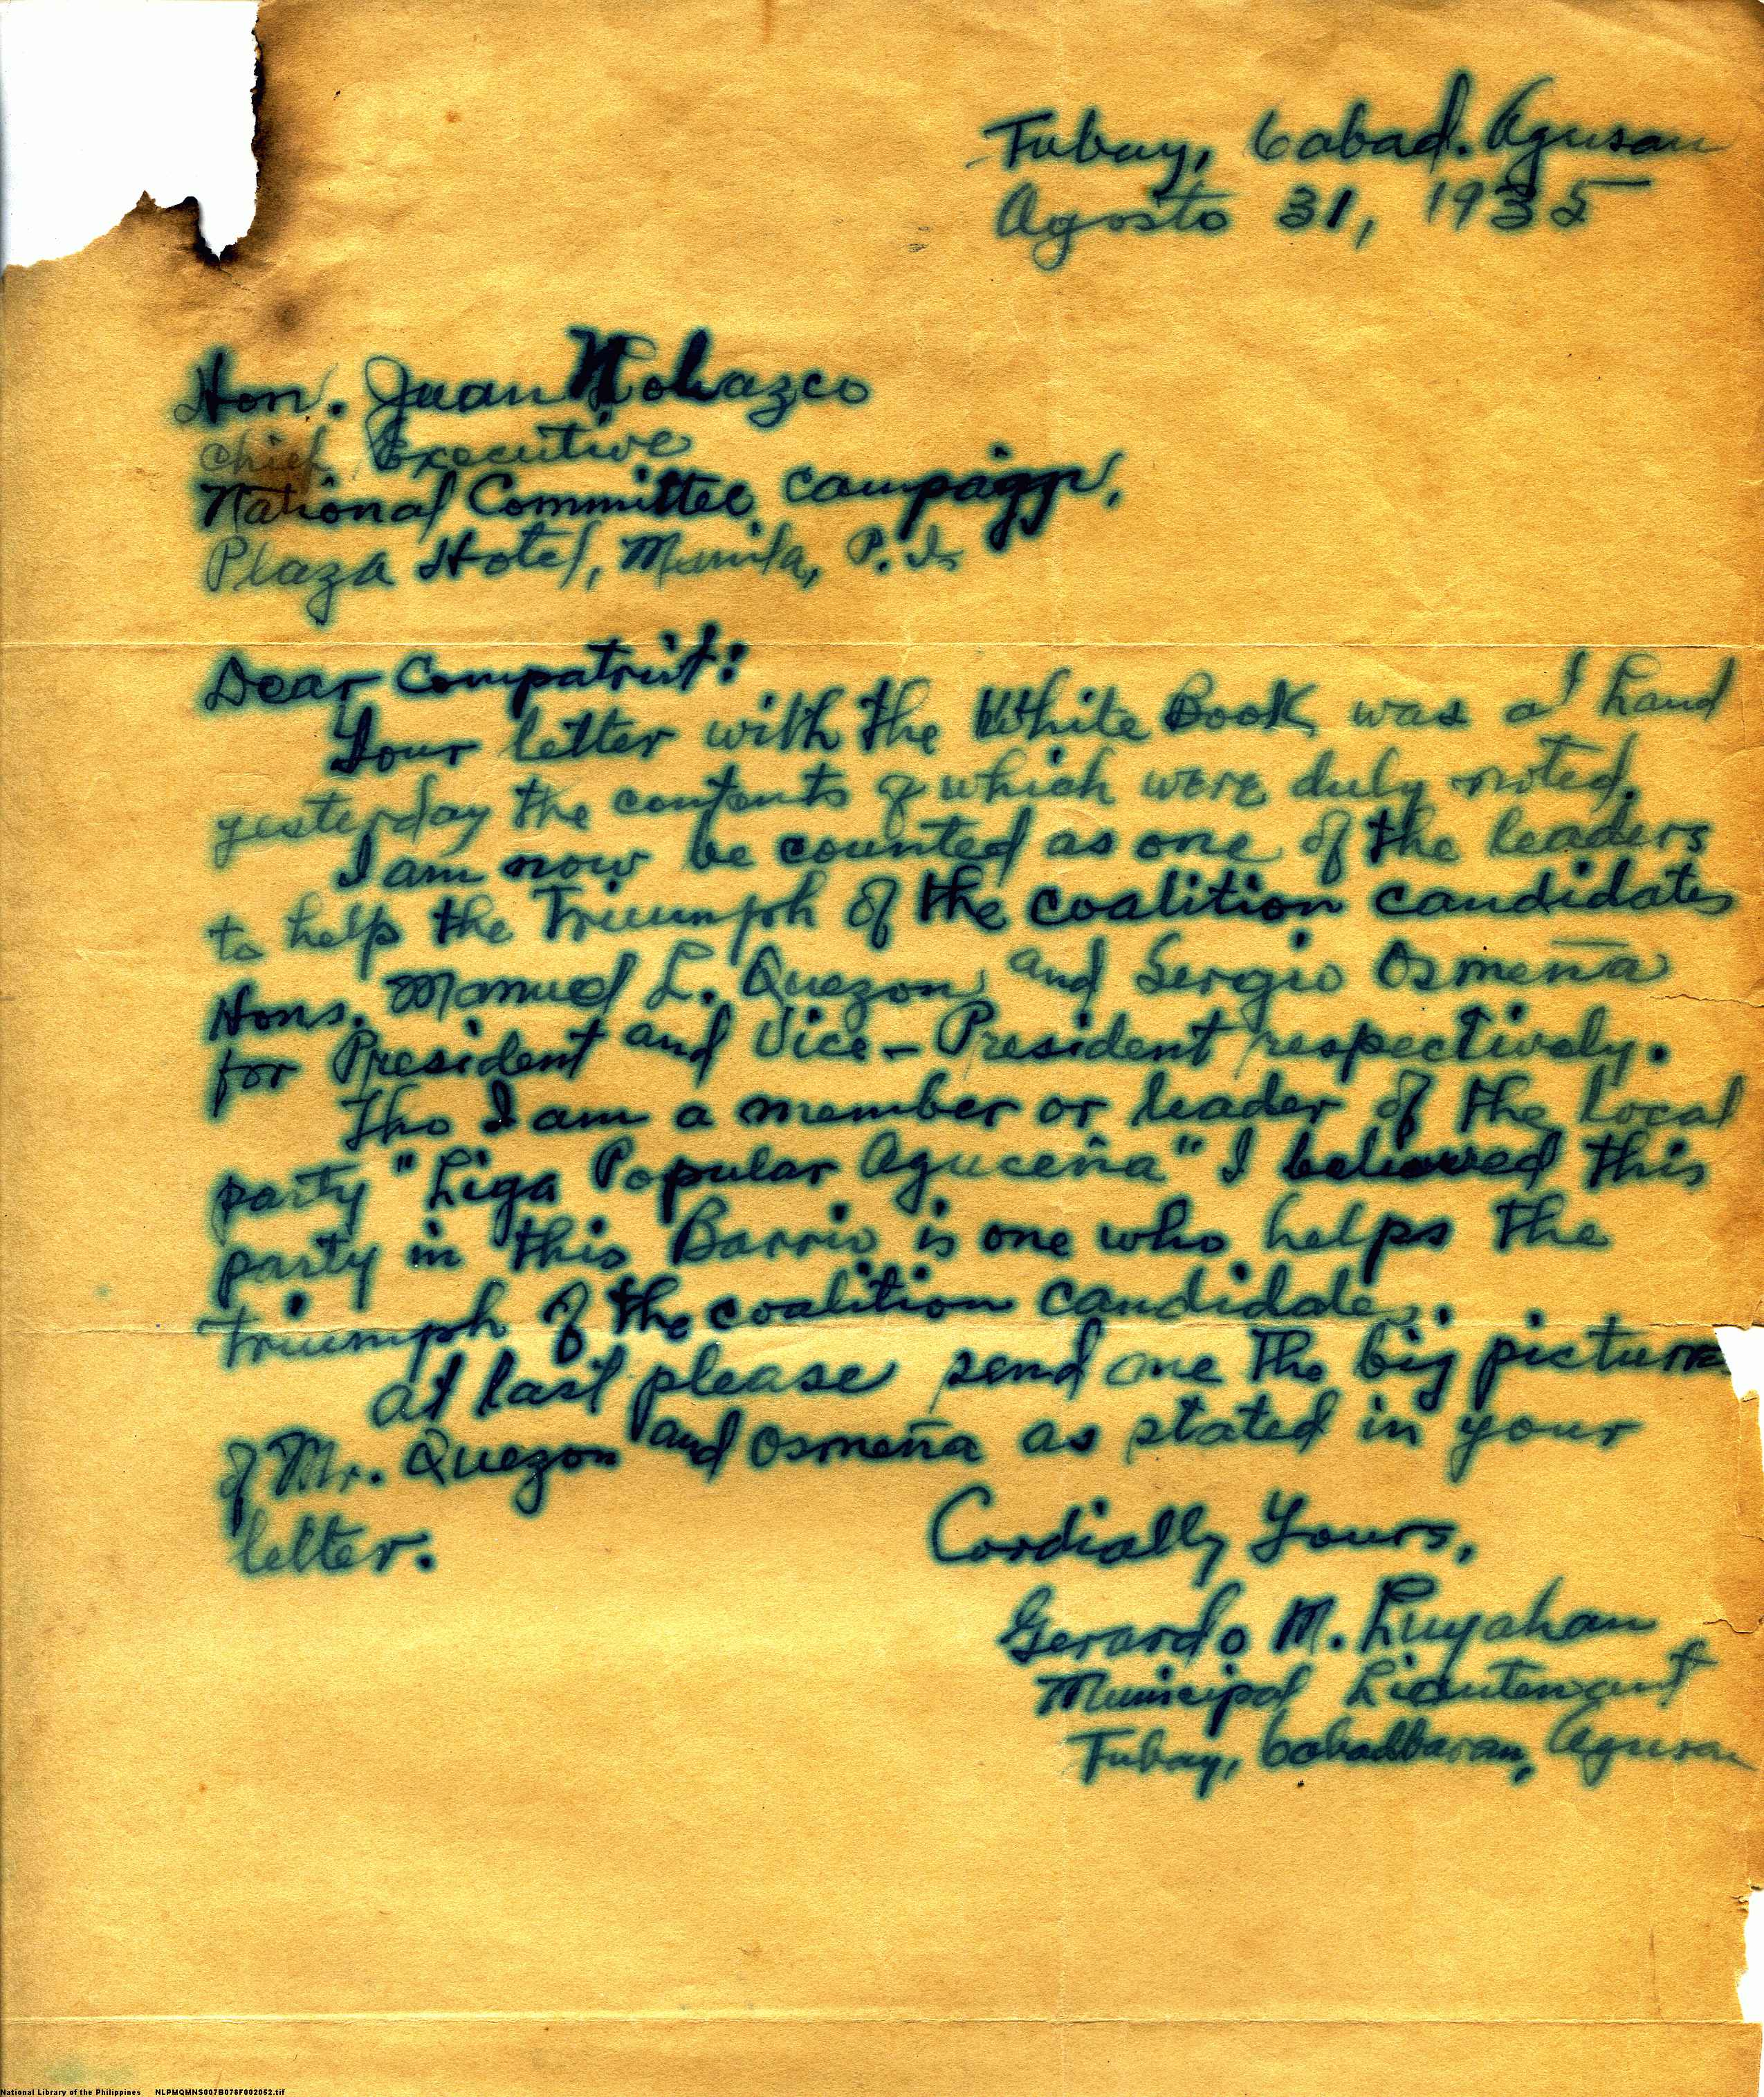 Tubay, Cabad. Agusan
Agosto 31, 1935
Hon. Juan Nolazco
Chief Executive
National Committee Campaign,
Plaza Hotel, Manila, P. I.
Dear Compatriot:
Your letter with the White Book was at hand
yesterday the contents of which were duly noted.
I am now be counted as one of the leaders
to help the Triumph of the coalition candidates
Hons. Manuel L. Quezon and Sergio Osmeña
for President and Vice-President respectively.
Tho I am a member or leader of the local
party "Liga Popular Aguceña" I believed this
party in this Barrio is one who helps the
triumph of the coalition candidates.
At last please send me the big picture
of Mr. Quezon and Osmeña as stated in your
letter.
Cordially Yours,
Gerardo M. Luyahan
Municipal Lieutenant
Tubay, Cabadbaran, Agusan
National Library of the Philippines NLPMQMNS007B078F002052.tif